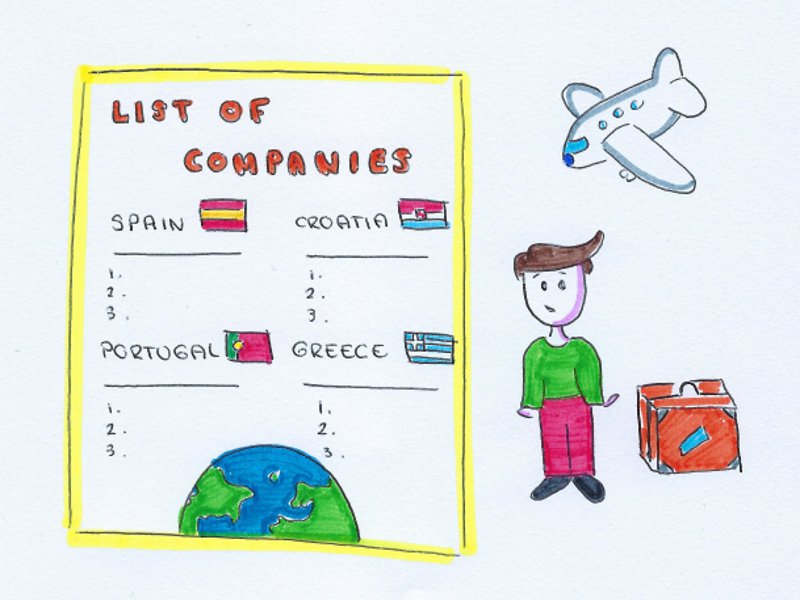 LIST OF
COMPANIES
SPAIN
1.
2.
3.
CROATIA
1.
2.
3.
PORTUGAL
1.
2.
3.
GREECE
1.
2.
3.